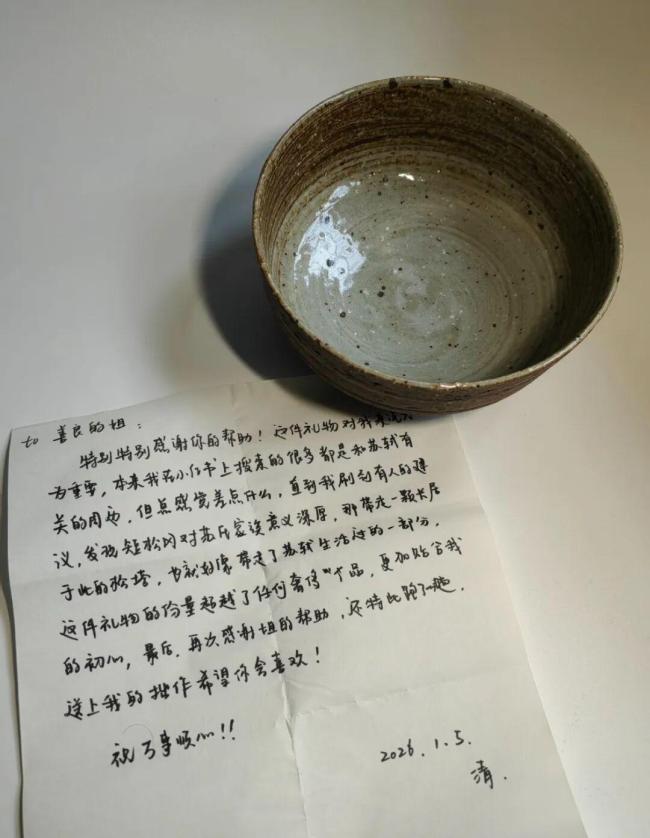 to 善良的姐：
特别特别感谢你的帮助！这件礼物对我来说尤
为重要，本来我在小红书上搜索的很多都是和苏轼有
关的周边，但总感觉差点什么，直到我刷到有人的建
议，发现短松冈对苏氏家族意义深厚，那带走一颗长居
于此的松塔，也就好像带走了苏轼生活过的一部分，
这件礼物的份量超越了任何奢侈品，更加贴合我
的初心，最后，再次感谢姐的帮助，还特此跑了一趟，
送上我的拙作希望你会喜欢！
祝万事顺心!!
2026.1.5.
清.